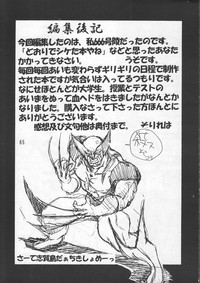 編集後記
今回編集したのは、私666号だった
「どおりでシケたオヤね」などと思ったあなた
かかってきなさい。 うそです。
毎回毎回あいも変わらずギリギリの日程で制作
された本ですが気合いは入ってるつもりです。
なにせほとんどが大学生。授業とテストの
あいまをぬって血ヘドをはきましたがなんとか
なりました。購入なさって下さった方ほんとに
ありがとうございます。
感想及び文句他は奥付まで。 それじゃ
65
さーて志賀島だぁちきしょめーっ